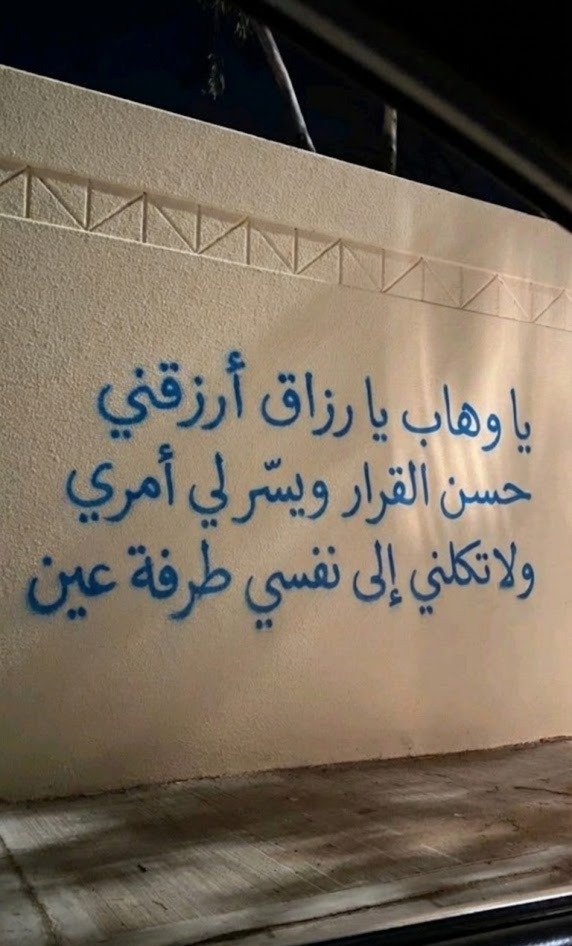 يا وهاب يا رزاق أرزقني
حسن القرار ويسّر لي أمري
ولاتكلني إلى نفسي طرفة عين